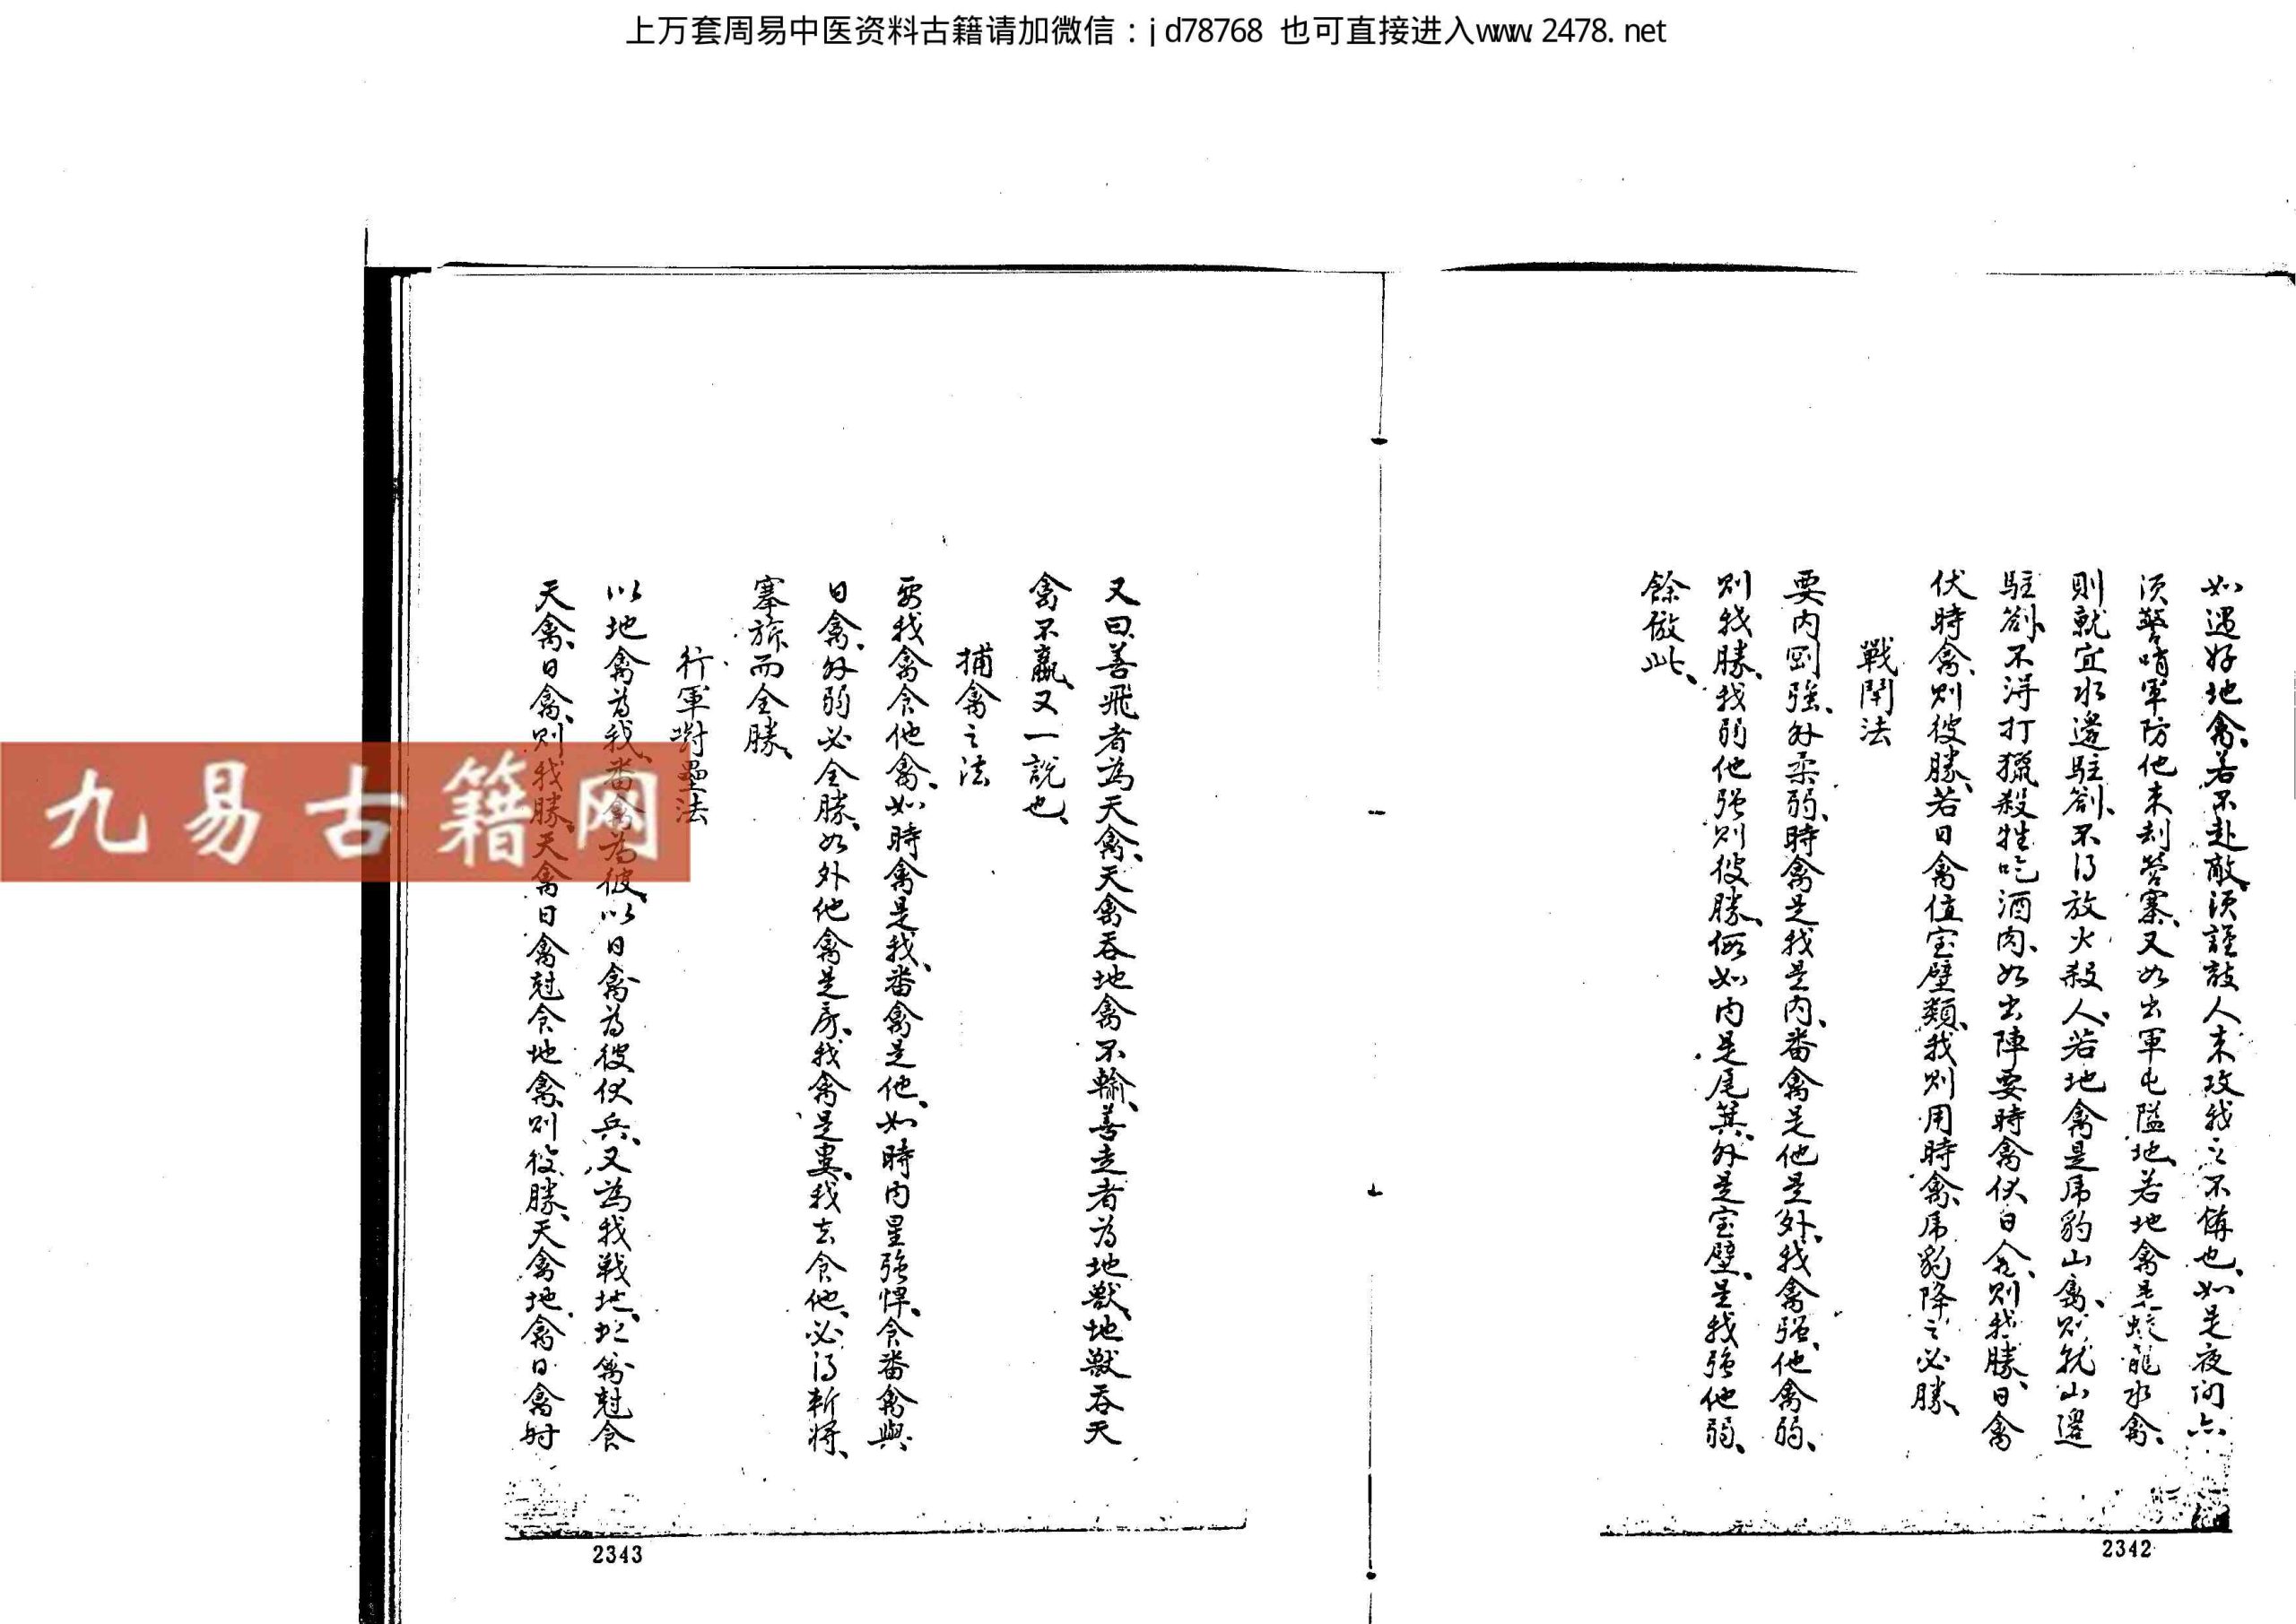 上万套周易中医资料古籍请加微信：jd78768 也可直接进入www.2478.net
如遇好地禽、若不赴敵、須謹敵人来攻我之不備也、如是夜间亦
須警哨軍防他来刦營寨、又如出軍屯隘地、若地禽是蛇龍水禽、
則就宜水邊駐劄、不得放火殺人、若地禽是虎豹山禽、则就山邊
駐劄、不得打獵殺牲吃酒肉、如出陣要時禽伏日禽、则我勝、日禽
伏時禽、则彼勝、若日禽值室壁類、我则用時禽虎豹降之必勝、
戰鬥法
要内剛强、外柔弱、時禽是我是内、番禽是他是外、我禽强、他禽弱、
则我勝、我弱他强则彼勝、假如内是尾箕、外是室壁、是我强他弱、
餘倣此、
又曰善飛者為天禽、天禽吞地禽不輸、善走者為地獸、地獸吞天
禽不贏、又一說也、
捕禽之法
要我禽食他禽、如時禽是我、番禽是他、如時内星强悍、食番禽與
日禽、外弱必全勝、如外他禽是房、我禽是婁、我去食他、必得斬将、
搴旂而全勝、
行軍對壘法
以地禽為我、番禽為彼、以日禽為彼伏兵、又為我戰地、地禽尅食
天禽、日禽、则我勝、天禽日禽尅食地禽、则彼勝、天禽地禽日禽時
九易古籍网
2343
2342